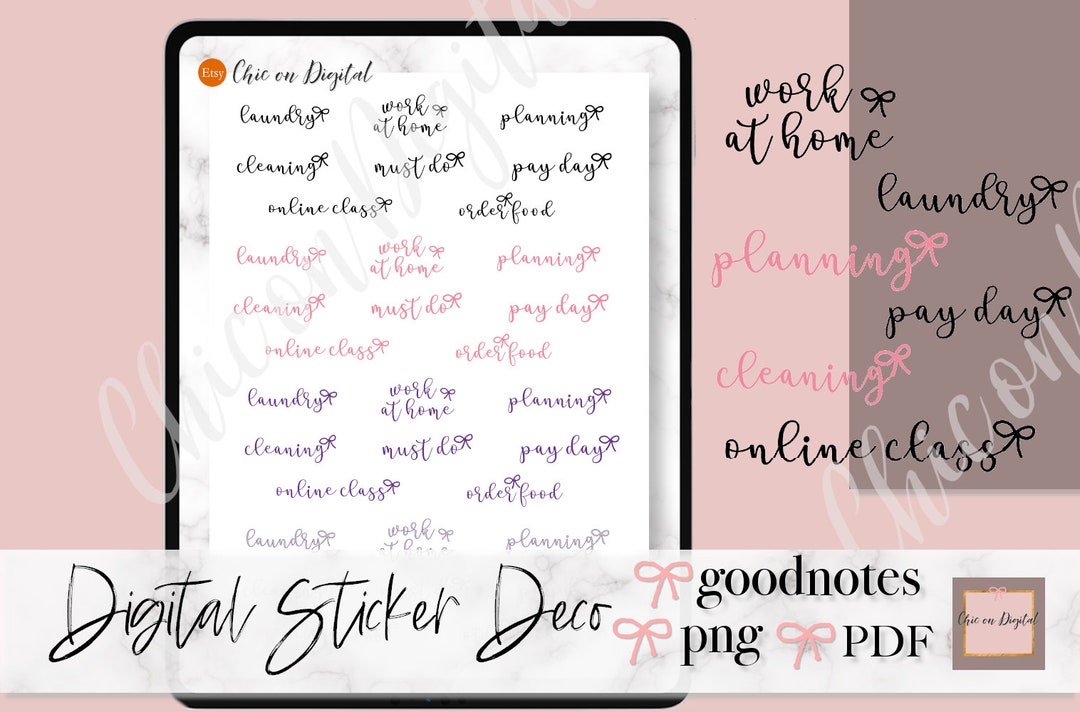 Etsy Chic on Digital
laundry work at home planning
cleaning must do pay day
online class order food
laundry work at home planning
cleaning must do pay day
online class order food
laundry work at home planning
cleaning must do pay day
online class order food
laundry work planning
work
at home
laundry
planning
pay day
cleaning
online class
Chic on Digital
Chic on
Digital Sticker Deco
goodnotes
png PDF
Chic on Digital